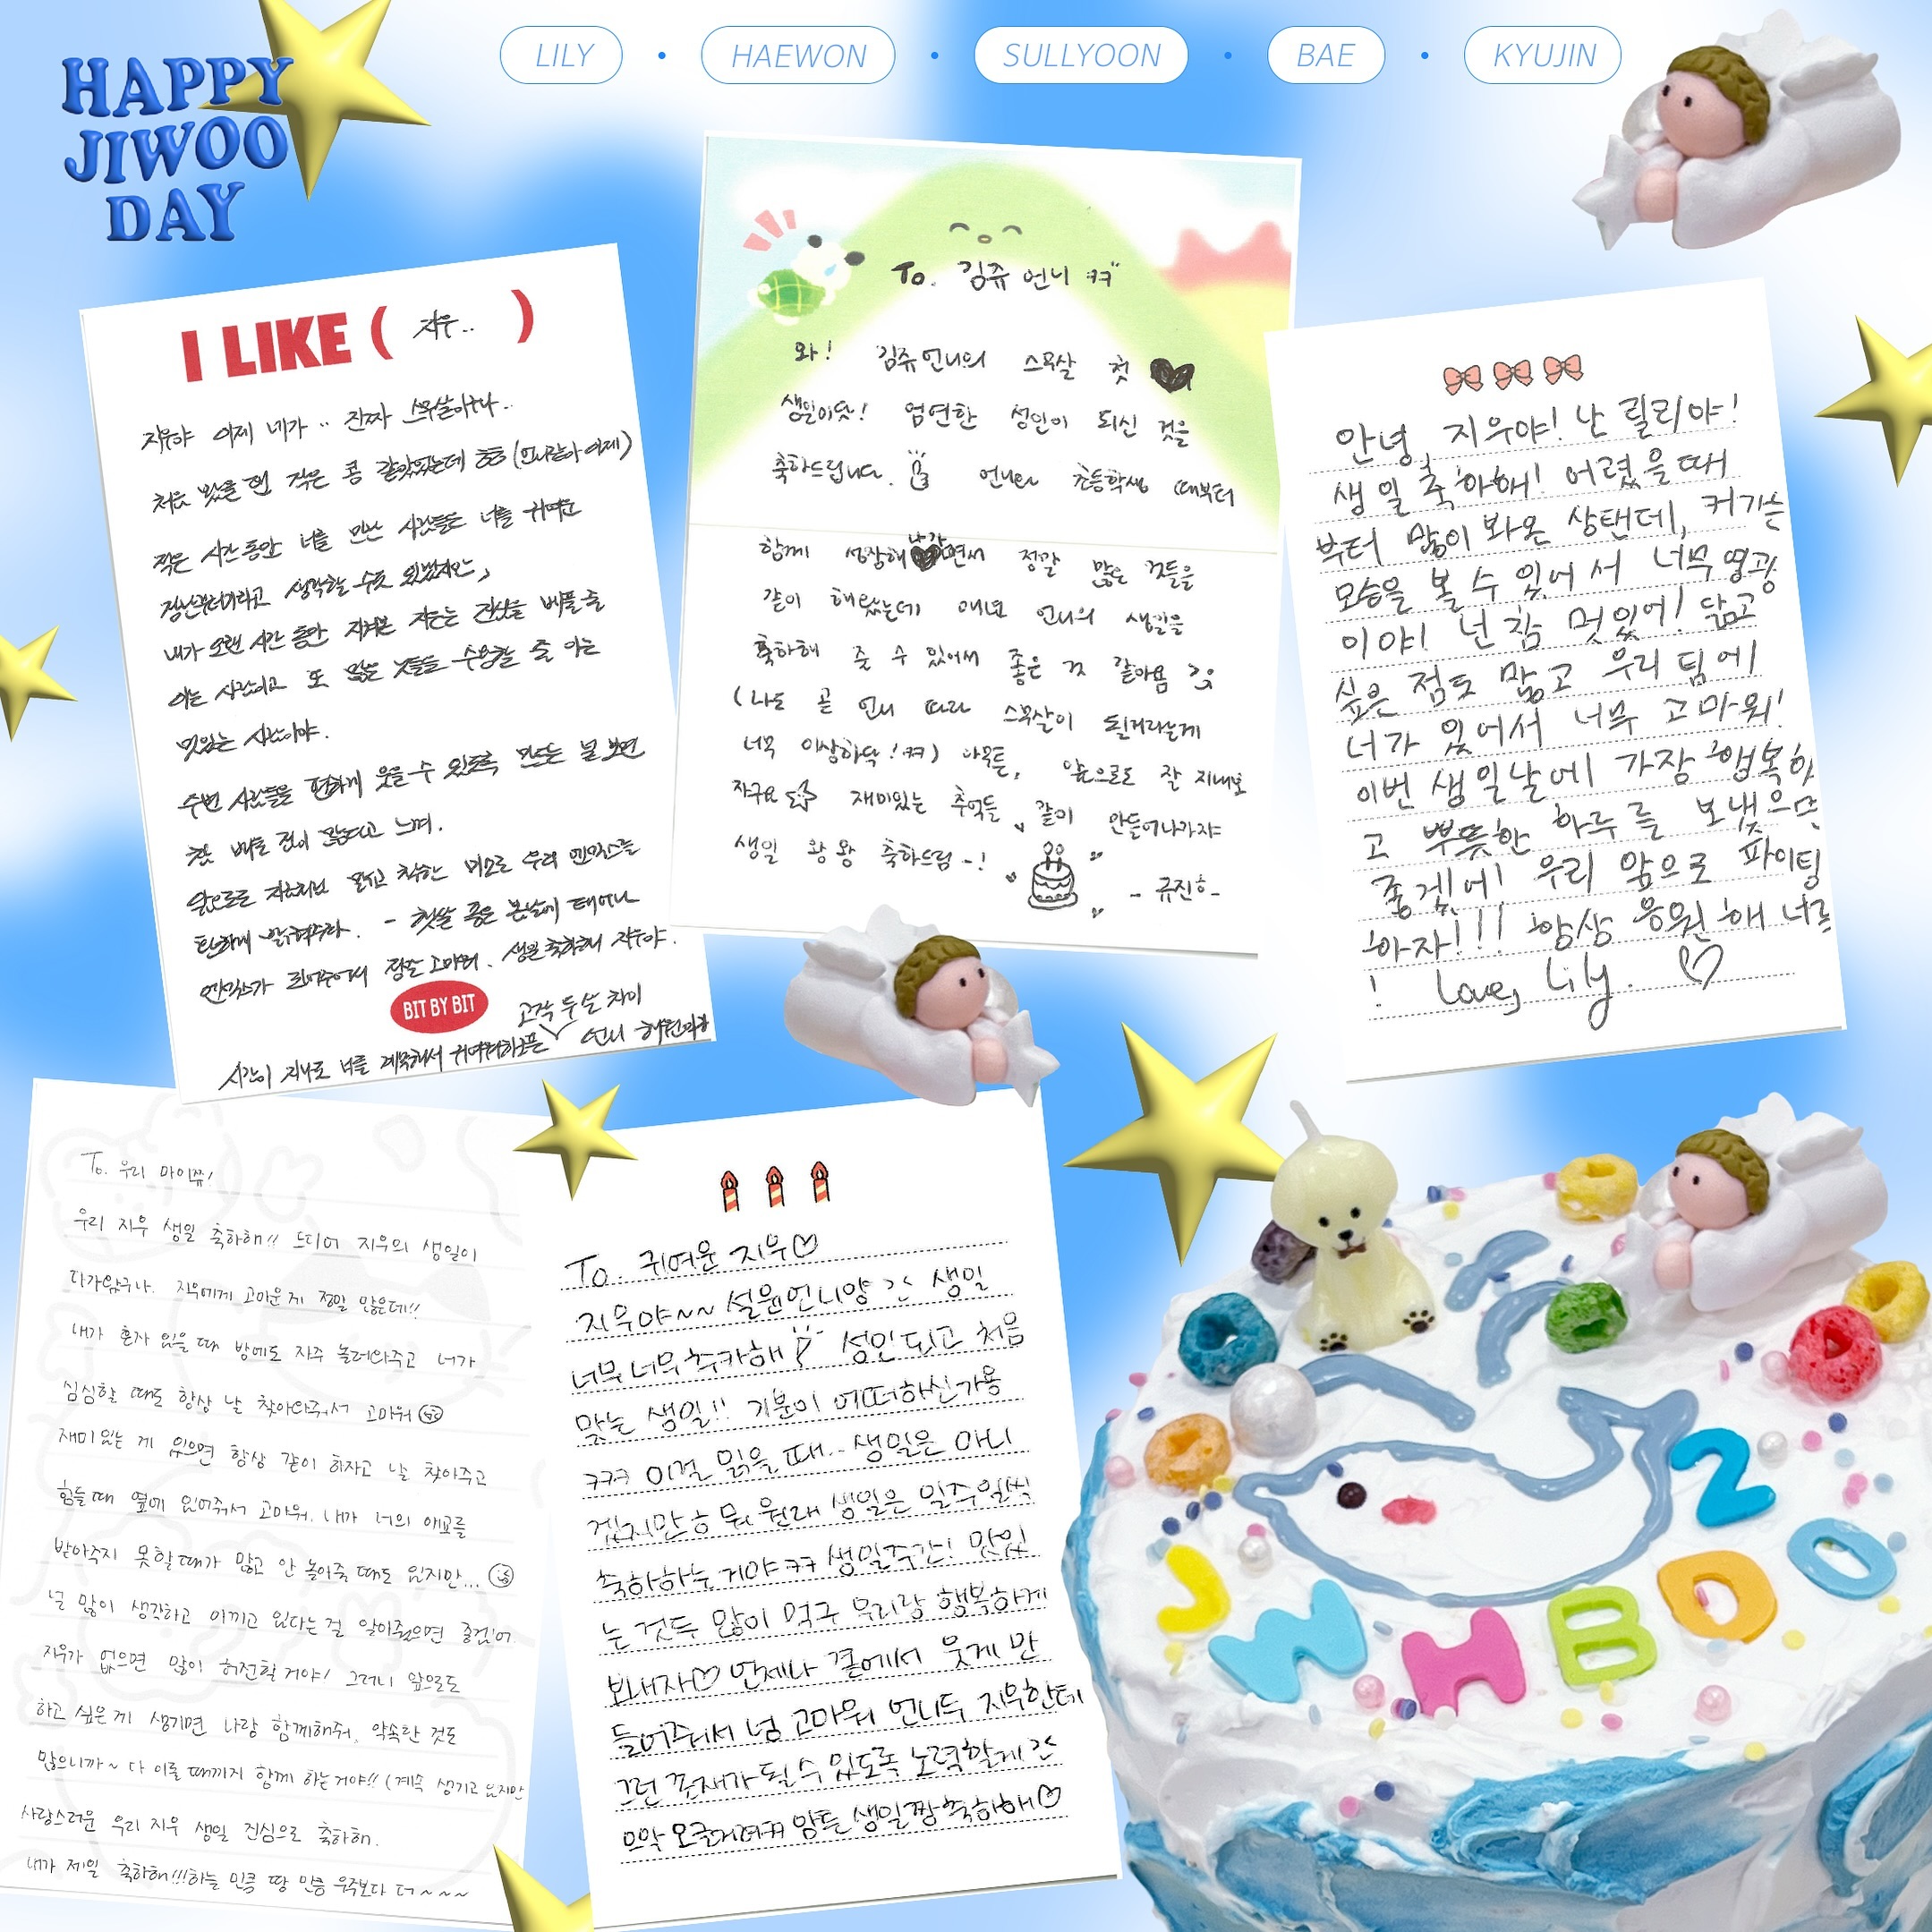 HAPPY
JIWOO
DAY
LILY • HAEWON • SULLYOON • BAE • KYUJIN
I LIKE ( 지우.. )
지우야 이제 네가.. 진짜 스무살이구나..
처음 봤을 땐 작은 콩 같았었는데 ㅎㅎ (언니같아 이제)
작은 시간동안 너를 만난 사람들은 너를 귀여운
장난꾸러기라고 생각할 수도 있겠지만,
내가 오랜 시간 동안 지켜본 지우는 진심을 베풀 줄
아는 사람이고 또 많은 것들을 수용할 줄 아는
멋있는 사람이야.
주변 사람들을 편하게 웃을 수 있도록 만드는 널 보면
참 배울 점이 많다고 느껴.
앞으로도 지금처럼 맑고 착한 미소로 우리 엔믹스를
환하게 밝혀주라. - 햇살 좋은 봄날에 태어나
엔믹스가 되어주어서 정말 고마워. 생일 축하해 지우야.
BIT BY BIT
고작 두 살 차이
시간이 지나도 너를 계속해서 귀여워하고픈 언니 해원이가
To. 김쥬 언니 ㅋㅋ
와! 김쥬언니의 스무살 첫
생일이닷! 엄연한 성인이 되신 것을
축하드립니다. 언니랑 초등학생 때부터
함께 성장해나가면서 정말 많은 것들을
같이 해왔는데 매년 언니의 생일을
축하해 줄 수 있어서 좋은 것 같아욤
(나도 곧 언니 따라 스무살이 될거라는게
너무 이상하닥! ㅋㅋ) 아무튼, 앞으로도 잘 지내보
자구요 재미있는 추억들 같이 만들어나가쟈
생일 왕왕 축하드림~!
- 규진 -
안녕, 지우야! 난 릴리야!
생일 축하해! 어렸을때
부터 많이 봐온 상탠데, 커가는
모습을 볼 수 있어서 너무 영광
이야! 넌 참 멋있어! 닮고
싶은 점도 많고 우리 팀에
너가 있어서 너무 고마워!
이번 생일날에 가장 행복하
고 뿌듯한 하루를 보냈으면
좋겠어! 우리 앞으로 파이팅
하자!!! 항상 응원해 너를
! Love, Lily. ♡
To. 우리 마이쮸!
우리 지우 생일 축하해!! 드디어 지우의 생일이
다가왔구나. 지우에게 고마운 게 정말 많은데!!
내가 혼자 있을 때 방에도 자주 놀러와주고 너가
심심할 때도 항상 날 찾아와줘서 고마워
재미있는 게 있으면 항상 같이 하자고 날 찾아주고
힘들 때 옆에 있어줘서 고마워. 내가 너의 애교를
받아주지 못할 때가 많고 안 놀아줄 때도 있지만...
널 많이 생각하고 아끼고 있다는 걸 알아줬으면 좋겠어.
지우가 없으면 많이 허전할 거야! 그러니 앞으로도
하고 싶은 게 생기면 나랑 함께해줘. 약속한 것도
많으니까~ 다 이룰 때까지 함께 하는거야!! (계속 생기고 있지만
사랑스러운 우리 지우 생일 진심으로 축하해.
내가 제일 축하해!!! 하늘 만큼 땅 만큼 우주보다 더~~~
To. 귀여운 지우♡
지우야~~ 설윤언니양 생일
너무너무추카해 성인되고 처음
맞는 생일!! 기분이 어떠하신가용
ㅋㅋㅋ 이걸 읽을 때.. 생일은 아니
겠지만ㅎ 뭐 원래 생일은 일주일씩
축하하는 거야ㅋㅋ 생일주간! 맛있
는 것두 많이 먹구 우리랑 행복하게
보내자♡ 언제나 곁에서 웃게 만
들어줘서 넘 고마워 언니두 지우한테
그런 존재가 될 수 있도록 노력할게
으악 오글거려ㅋㅋ 암튼 생일 짱 축하해♡
2 0
J W H B D